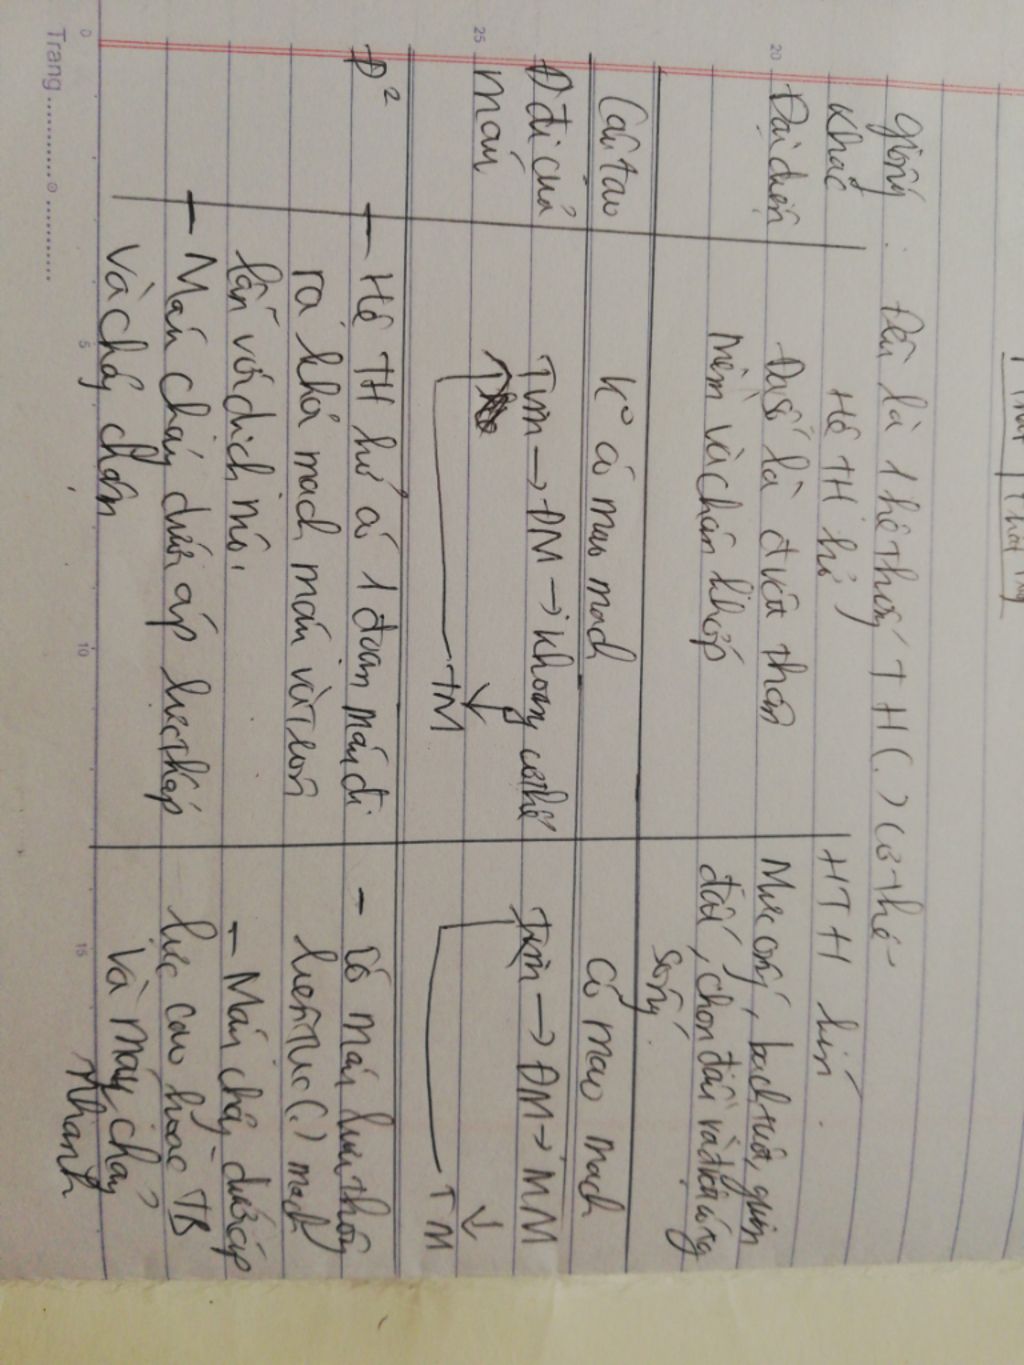 Giống: Đều là 1 hệ thống TH (.) cơ thể
Khác
Hệ TH hở
HTH kín.
Đại diện
Đa số là đvật thân
mềm và chân khớp
Mực ống, bạch tuộc, giun
đốt, chân đầu và đvật có xg
sống.
Cấu tạo
K° có mao mạch
Có mao mạch
Đ đi của
máu
Tim → ĐM → khoang cơ thể
↓
TM
Tim → ĐM → MM
↓
TM
Đ²
- Hệ TH hở có 1 đoạn máu đi
ra khỏi mạch máu và trộn
lẫn với dịch mô.
- Máu chảy dưới áp lực thấp
và chảy chậm
- Có máu lưu thông
liên tục (.) mạch
- Máu chảy dưới áp
lực cao hoặc TB
và máu chảy
nhanh
Trang
0
5
10
15
20
25